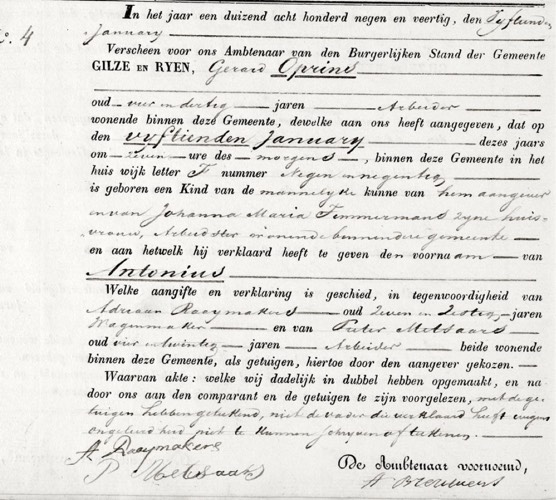 N<sup>o</sup>. 4
In het jaar een duizend acht honderd negen en veertig, den Vyftienden
January
Verscheen voor ons Ambtenaar van den Burgerlijken Stand der Gemeente
GILZE EN RYEN, Gerard Oprins
oud vier en dertig jaren Arbeider
wonende binnen deze Gemeente, dewelke aan ons heeft aangegeven, dat op
den vyftienden January dezes jaars
om zeven ure des morgens, binnen deze Gemeente in het
huis wijk letter F nummer Negen en negentig
is geboren een Kind van de mannelyke kunne van hem aangever
en van Johanna Maria Timmermans zyne huis-
vrouw, Arbeidster wonende binnen dere gemeente
en aan hetwelk hij verklaard heeft te geven den voornaam van
Antonius
Welke aangifte en verklaring is geschied, in tegenwoordigheid van
Adriaan Raaymakers oud zeven en zestig jaren
Wagenmaker en van Peter Metsaars
oud vier en twintig jaren Arbeider beide wonende
binnen deze Gemeente, als getuigen, hiertoe door den aangever gekozen.
Waarvan akte: welke wij dadelijk in dubbel hebben opgemaakt, en na
door ons aan den comparant en de getuigen te zijn voorgelezen, met de ge-
tuigen hebben getekend, niet de vader die verklaard heeft wegens
ongeleerdheid niet te kunnen schryven of tekenen.
A Raaymakers
P Metsaars
De Ambtenaar voornoemd,